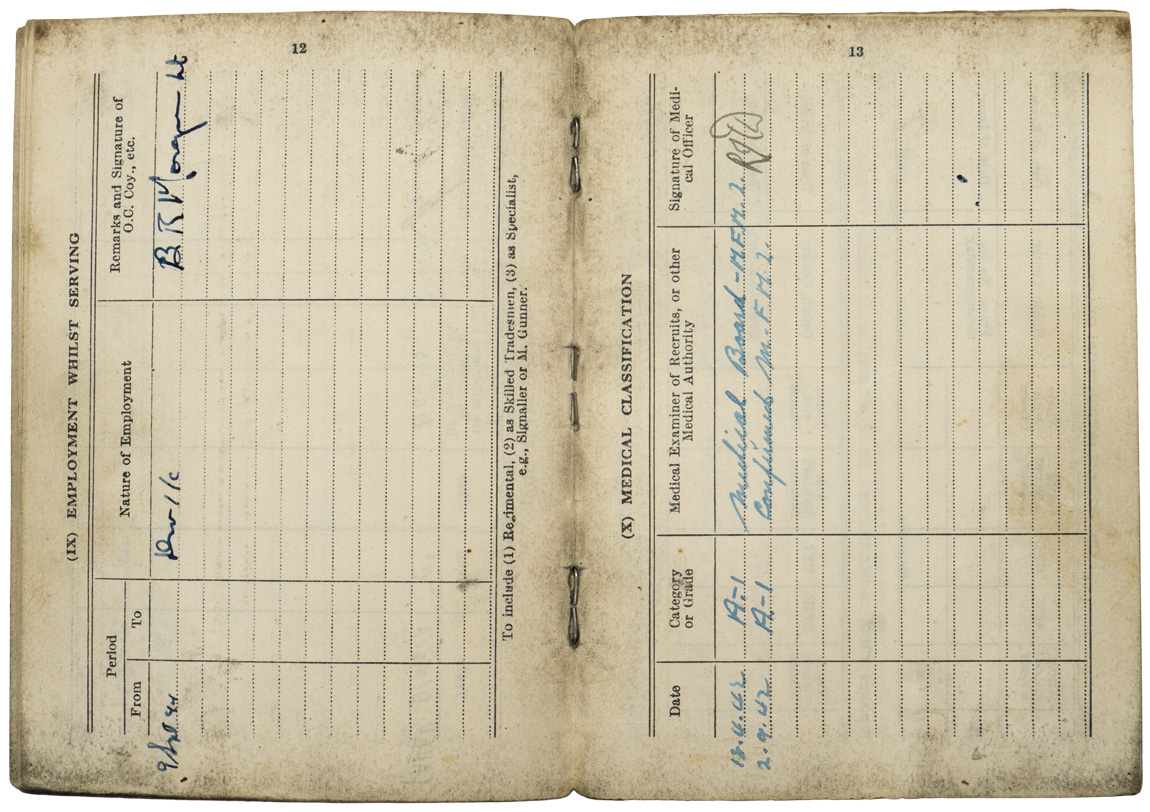 12
(IX) EMPLOYMENT WHILST SERVING
Period
From
To
Nature of Employment
Remarks and Signature of
O.C. Coy., etc.
B R Morgan Lt
To include (1) Regimental, (2) as Skilled Tradesmen, (3) as Specialist,
e.g., Signaller or M. Gunner.
13
(X) MEDICAL CLASSIFICATION
Date
Category
or Grade
Medical Examiner of Recruits, or other
Medical Authority
Signature of Medi-
cal Officer
A-1 Medical Board - M.F.M. 2.
2.9.42 A-1 Confirmed M.F.M. 2.